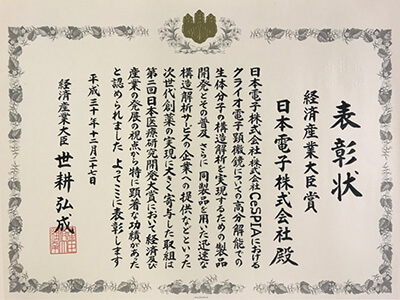 表彰状
経済産業大臣賞
日本電子株式会社 殿
日本電子株式会社、株式会社CeSPIAにおける
クライオ電子顕微鏡についての高分解能での
生体分子の構造解析を実現するための製品
開発とその普及 さらに 同製品を用いた迅速な
構造解析サービスの企業への提供などといった
次世代創薬の実現に大きく寄与した取組は
第二回日本医療研究開発大賞において経済及び
産業の発展の視点から特に顕著な功績があった
と認められました よってここに表彰します
平成三十年十二月二十七日
経済産業大臣 世耕弘成